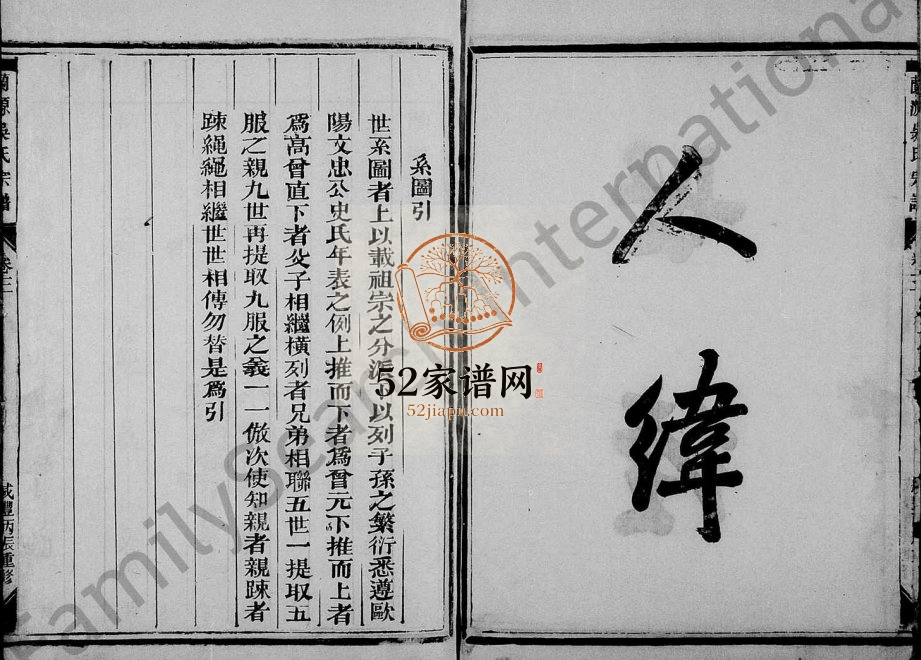 人緯
系圖引
世系圖者上以載祖宗之分派下以列子孫之繁衍悉遵歐
陽文忠公史氏年表之例上推而下者爲曾元下推而上者
爲高曾直下者父子相繼橫列者兄弟相聯五世一提取五
服之親九世再提取九服之義一一倣次使知親者親踈者
踈繩繩相繼世世相傳勿替是爲引
蘭源吳氏宗譜
卷二
咸豐丙辰重修
52家谱网
52jiapu.com
FamilySearch International